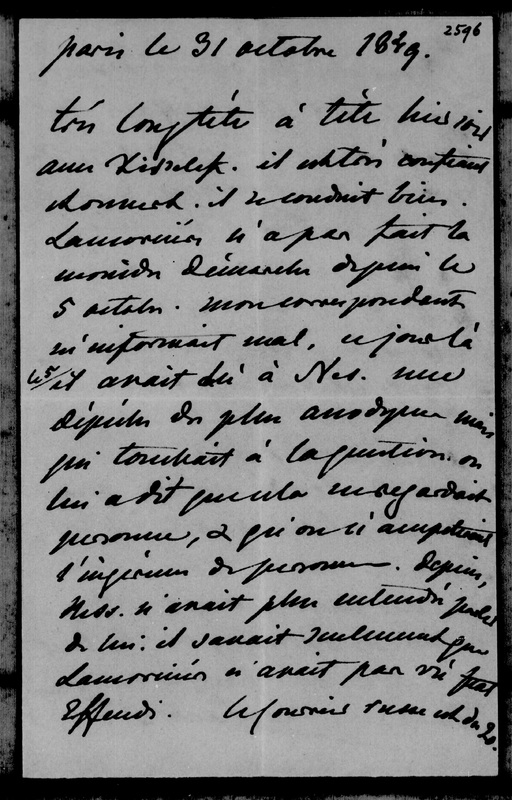 2596
Paris le 31 octobre 1849.
très long tête à tête hier soir
avec Kisselef. il est très content
et ouvert. il se conduit bien.
Lamoricière n'a pas fait la
moindre démarche depuis le
5 octobre. mon correspondant
m'informait mal, ce jour là
le 5/ il avait lu à Ness. une
dépêche des plus anodyne mais
qui touchait à la question. on
lui a dit que cela ne regardait
personne, & qu'on n'accepterait
l'ingérence de personne. depuis,
Ness. n'avait plus entendu parler
de lui. il savait seulement que
Lamoricière n'avait pas vu Fuat
Effendi. le Courrier russe est du 20.